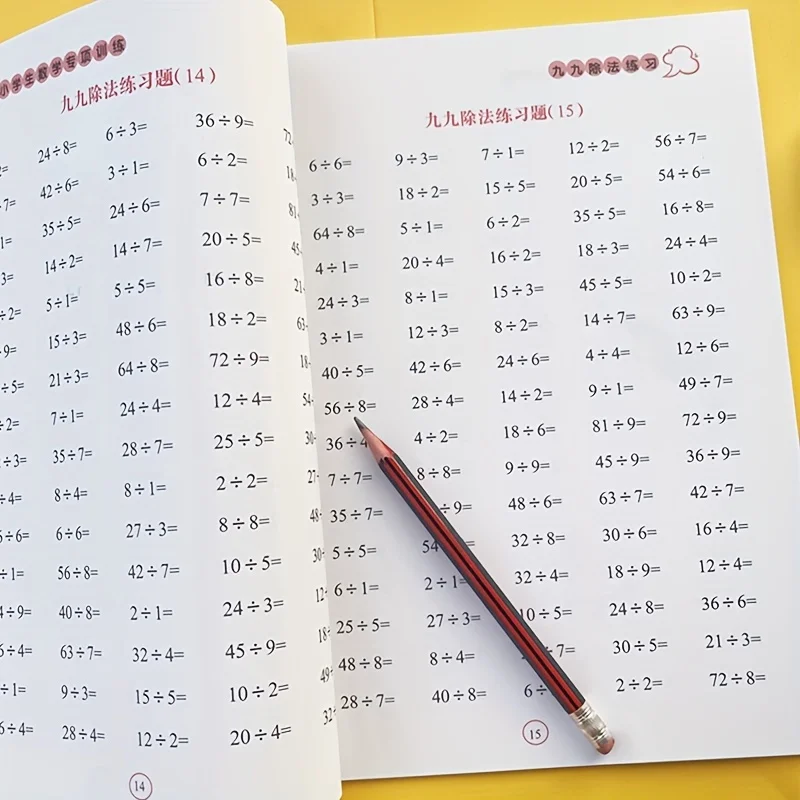 小学生数学专项训练
九九除法练习题(14)
24÷8= 6÷3= 36÷9=
42÷6= 3÷1= 6÷2=
35÷5= 24÷6= 7÷7=
14÷2= 14÷7= 20÷5=
5÷1= 5÷5= 16÷8=
15÷3= 48÷6= 18÷2=
21÷3= 64÷8= 72÷9=
7÷1= 24÷4= 12÷4=
35÷7= 28÷7= 25÷5=
8÷4= 8÷1= 2÷2=
6÷6= 27÷3= 8÷8=
56÷8= 42÷7= 10÷5=
40÷8= 2÷1= 24÷3=
63÷7= 32÷4= 45÷9=
9÷3= 15÷5= 10÷2=
28÷4= 12÷2= 20÷4=
14
九九除法练习
九九除法练习题(15)
6÷6= 9÷3= 7÷1= 12÷2= 56÷7=
3÷3= 18÷2= 15÷5= 20÷5= 54÷6=
64÷8= 5÷1= 6÷2= 35÷5= 16÷8=
4÷1= 20÷4= 16÷2= 18÷3= 24÷4=
24÷3= 8÷1= 15÷3= 45÷5= 10÷2=
3÷1= 12÷3= 8÷2= 14÷7= 63÷9=
40÷5= 42÷6= 24÷6= 4÷4= 12÷6=
56÷8= 28÷4= 14÷2= 9÷1= 49÷7=
36÷4 4÷2= 18÷6= 81÷9= 72÷9=
7÷7= 8÷8= 9÷9= 45÷9= 36÷9=
35÷7= ÷9= 48÷6= 63÷7= 42÷7=
5÷5= 54 32÷8= 30÷6= 16÷4=
6÷1= 2÷1= 32÷4= 18÷9= 12÷4=
25÷5= 27÷3= 10÷5= 24÷8= 36÷6=
48÷8= 8÷4= ÷7= 30÷5= 21÷3=
28÷7= 40÷8= 6÷ 2÷2= 72÷8=
15